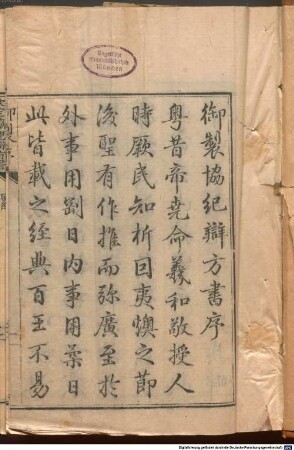 御製協紀辯方書序
粤昔帝堯命羲和敬授人
時厥民知析因夷燠之節
後聖有作推而弥廣至於
外事用剛日内事用柔日
此皆載之經典百王不易